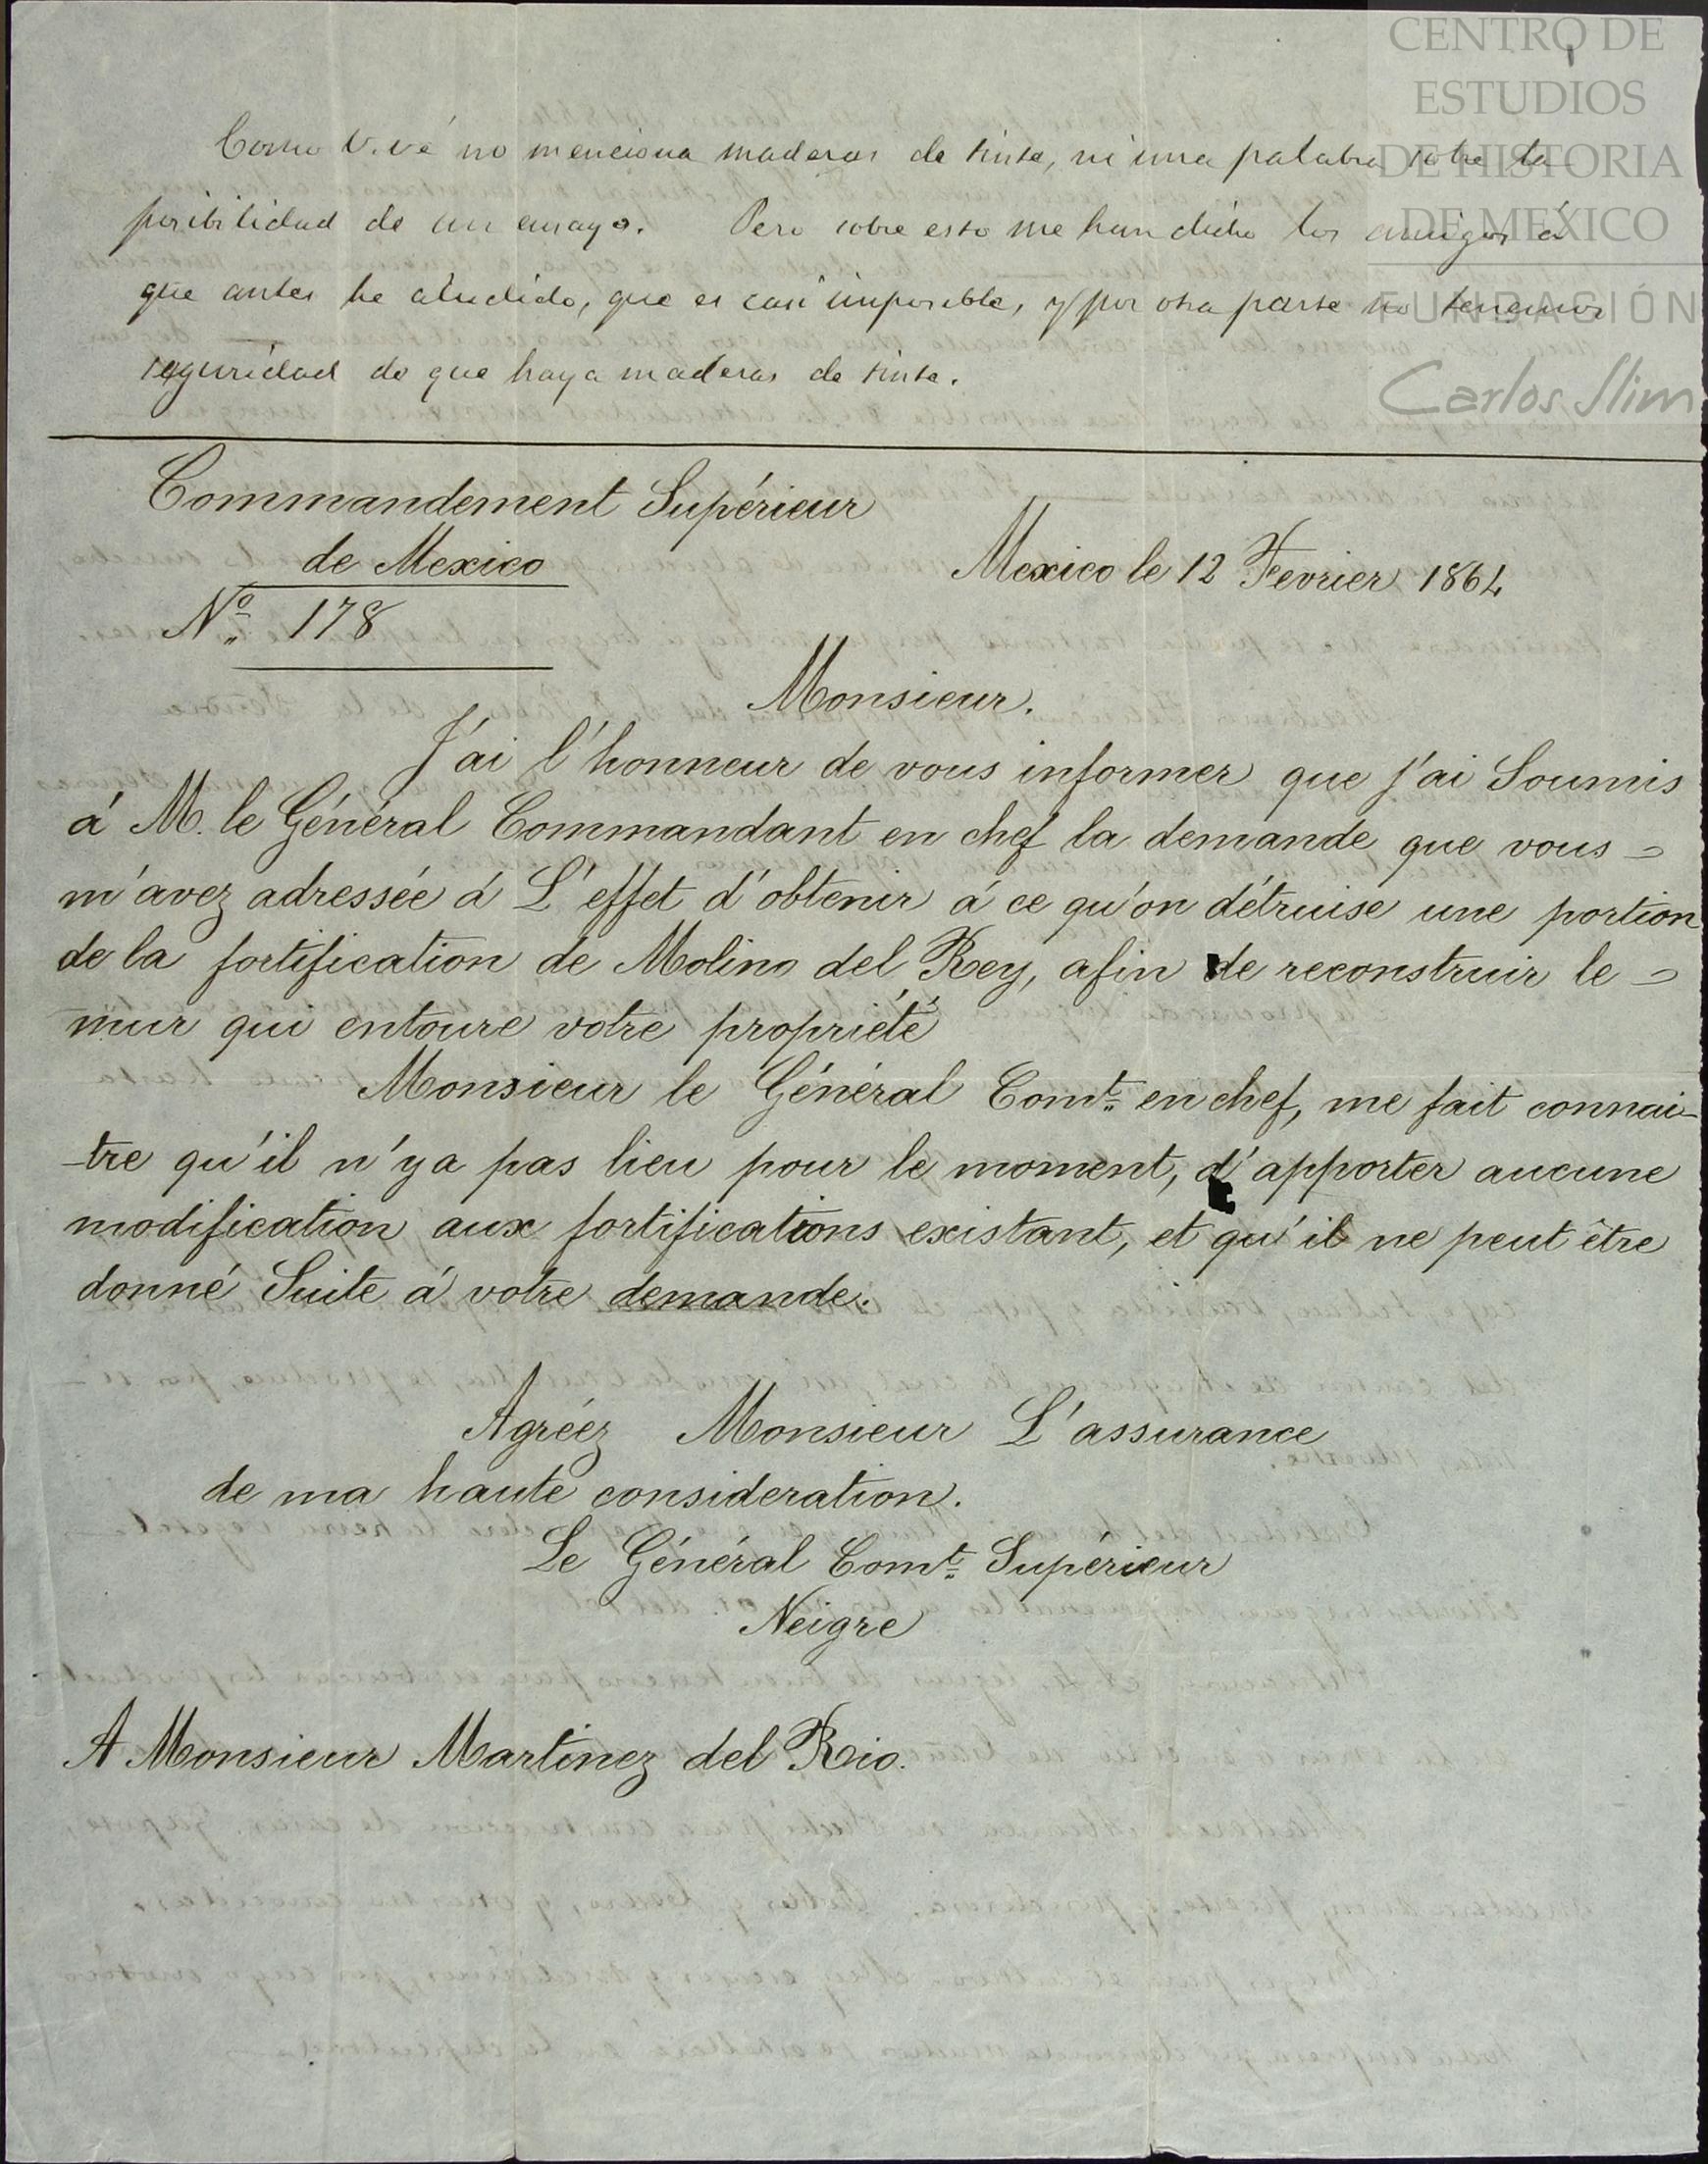 CENTRO DE
ESTUDIOS
DE HISTORIA
DE MEXICO
FUNDACIÓN
Carlos Slim
Como V. vé no menciona maderas de tinte, ni una palabra sobre la
posibilidad de un ensayo. Pero sobre esto me han dicho los amigos á
que antes he aludido, que es casi imposible, y por otra parte no tenemos
seguridad de que haya maderas de tinte.
Commandement Supérieur
de Mexico
Nº 178
Mexico le 12 Fevrier 1864
Monsieur.
J'ai l'honneur de vous informer que j'ai Soumis
á M. le Général Commandant en chef la demande que vous =
m'avez adressée á L'effet d'obtenir á ce qu'on détruise une portion
de la fortification de Molino del Rey, afin de reconstruir le =
mur qui entoure votre propriété
Monsieur le Général Comt. en chef, me fait connai-
-tre qu'il n'y a pas lieu pour le moment, d'apporter aucune
modification aux fortifications existant, et qu'il ne peut être
donné Suite á votre demande.
Agréez Monsieur L'assurance
de ma haute consideration.
Le Général Comt. Supérieur
Neigre
A Monsieur Martinez del Rio.